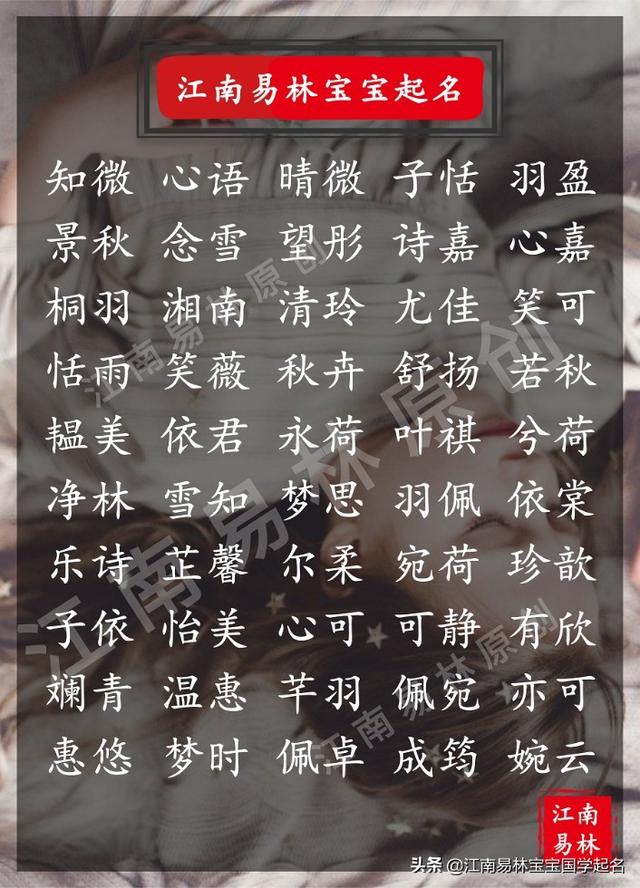 江南易林宝宝起名
知微 心语 晴微 子恬 羽盈
景秋 念雪 望彤 诗嘉 心嘉
桐羽 湘南 清玲 尤佳 笑可
恬雨 笑薇 秋卉 舒扬 若秋
韫美 依君 永荷 叶祺 兮荷
净林 雪知 梦思 羽佩 依棠
乐诗 芷馨 尔柔 宛荷 珍歆
子依 怡美 心可 可静 有欣
斓青 温惠 芊羽 佩宛 亦可
惠悠 梦时 佩卓 成筠 婉云
江南易林原创
江南易林原创
江南易林原创
江南
易林
头条 @江南易林宝宝国学起名